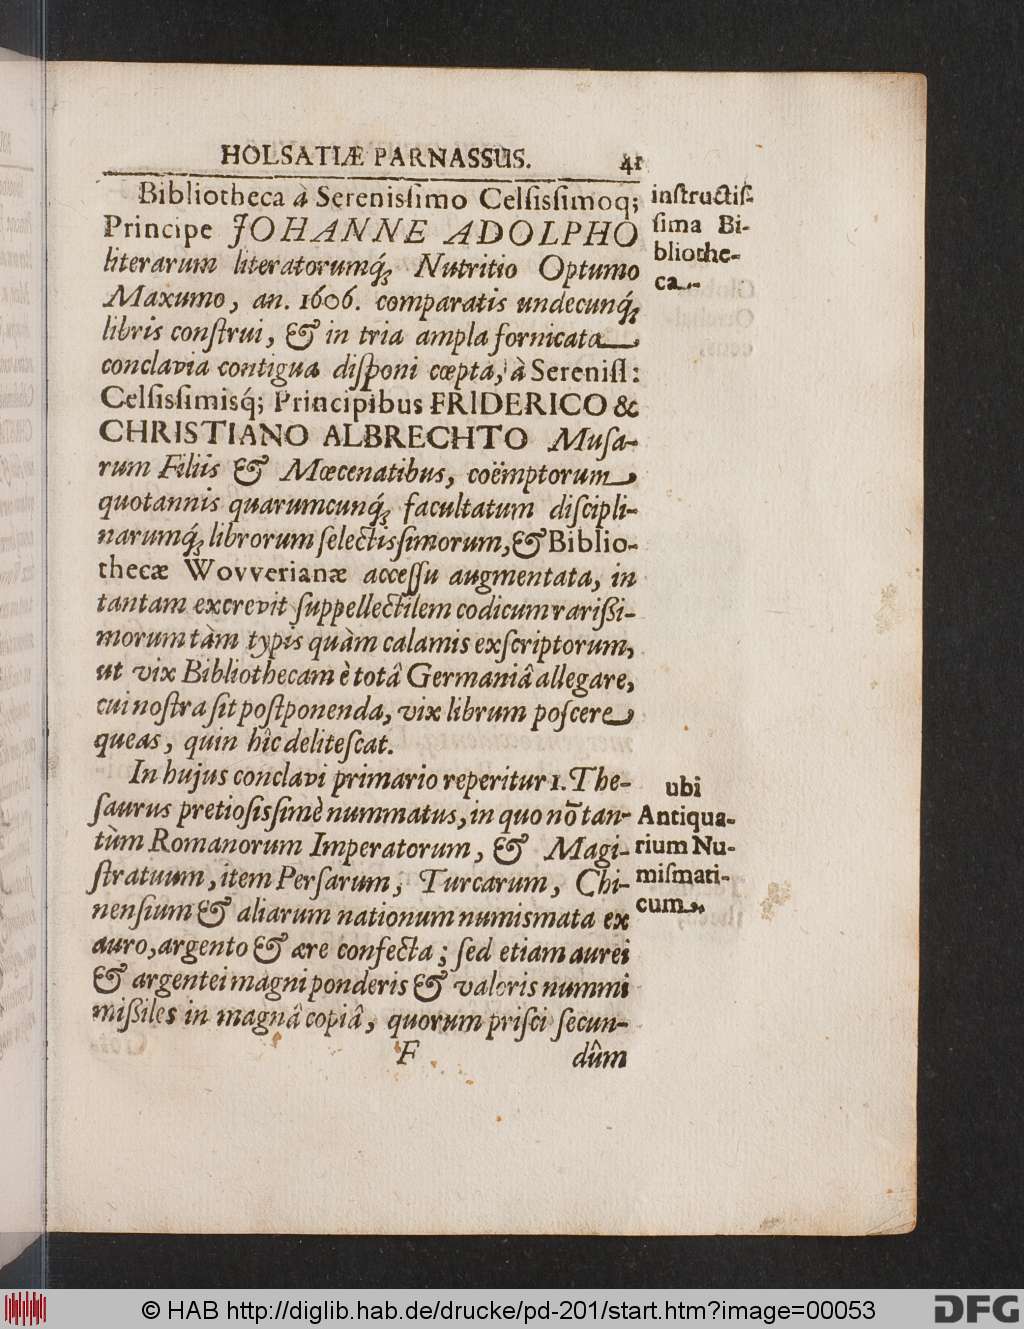 HOLSATIÆ PARNASSUS. 41
Bibliotheca à Serenissimo Celsissimoq;
Principe JOHANNE ADOLPHO
literarum literatorumq́; Nutritio Optumo
Maxumo, an. 1606. comparatis undecunq́;
libris conſtrui, & in tria ampla fornicata
conclavia contigua diſponi cœpta, à Sereniſſ:
Celſiſſimisq́; Principibus FRIDERICO &
CHRISTIANO ALBRECHTO Muſa-
rum Filiis & Mœcenatibus, coëmptorum
quotannis quarumcunq́; facultatum diſcipli-
narumq́; librorum ſelectiſſimorum, & Biblio-
thecæ Wovverianæ acceſſu augmentata, in
tantam excrevit ſuppellectilem codicum rariſſi-
morum tàm typis quàm calamis exſcriptorum,
ut vix Bibliothecam è totâ Germaniâ allegare,
cui noſtra ſit poſtponenda, vix librum poſcere
queas, quin hîc deliteſcat.
In hujus conclavi primario reperitur 1. The-
ſaurus pretioſiſſimè nummatus, in quo nō tan-
tùm Romanorum Imperatorum, & Magi-
ſtratuum, item Perſarum, Turcarum, Chi-
nenſium & aliarum nationum numismata ex
auro, argento & ære confecta; ſed etiam aurei
& argentei magni ponderis & valoris nummi
miſſiles in magnâ copiâ, quorum priſci ſecun-
F dûm
inſtructiſ-
ſima Bi-
bliothe-
ca
ubi
Antiqua-
rium Nu-
miſmati-
cum
© HAB http://diglib.hab.de/drucke/pd-201/start.htm?image=00053
DFG